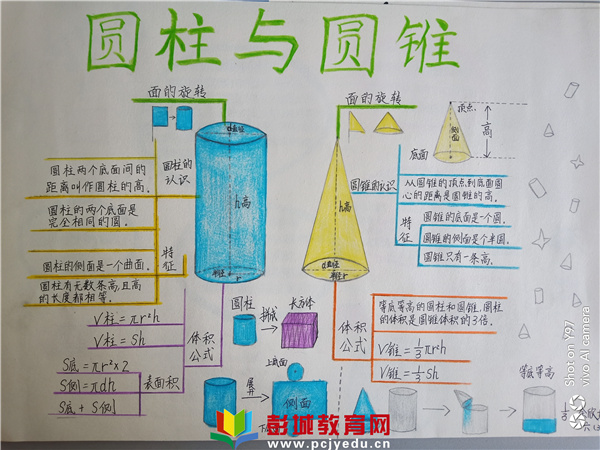 圆柱与圆锥
面的旋转
圆柱的认识
圆柱两个底面间的
距离叫作圆柱的高。
圆柱的两个底面是
完全相同的圆。
特征
圆柱的侧面是一个曲面。
圆柱有无数条高,且高
的长度都相等。
h高
r
V柱=πr²h
V柱=Sh
体积公式
S底=πr²×2
S侧=πdh
S底+S侧
表面积
圆柱
拼成
长方体
上底面
展开
侧面
面的旋转
顶点
侧面
高
底面
圆锥的认识
从圆锥的顶点到底面圆
心的距离是圆锥的高。
特征
圆锥的底面是一个圆。
圆锥的侧面是个半圆。
圆锥只有一条高。
h高
r
体积公式
等底等高的圆柱和圆锥,圆柱
的体积是圆锥体积的3倍。
V锥=1/3πr²h
V锥=1/3Sh
等底等高
彭城教育网
www.pcjyedu.cn
Shot on Y97
vivo AI camera